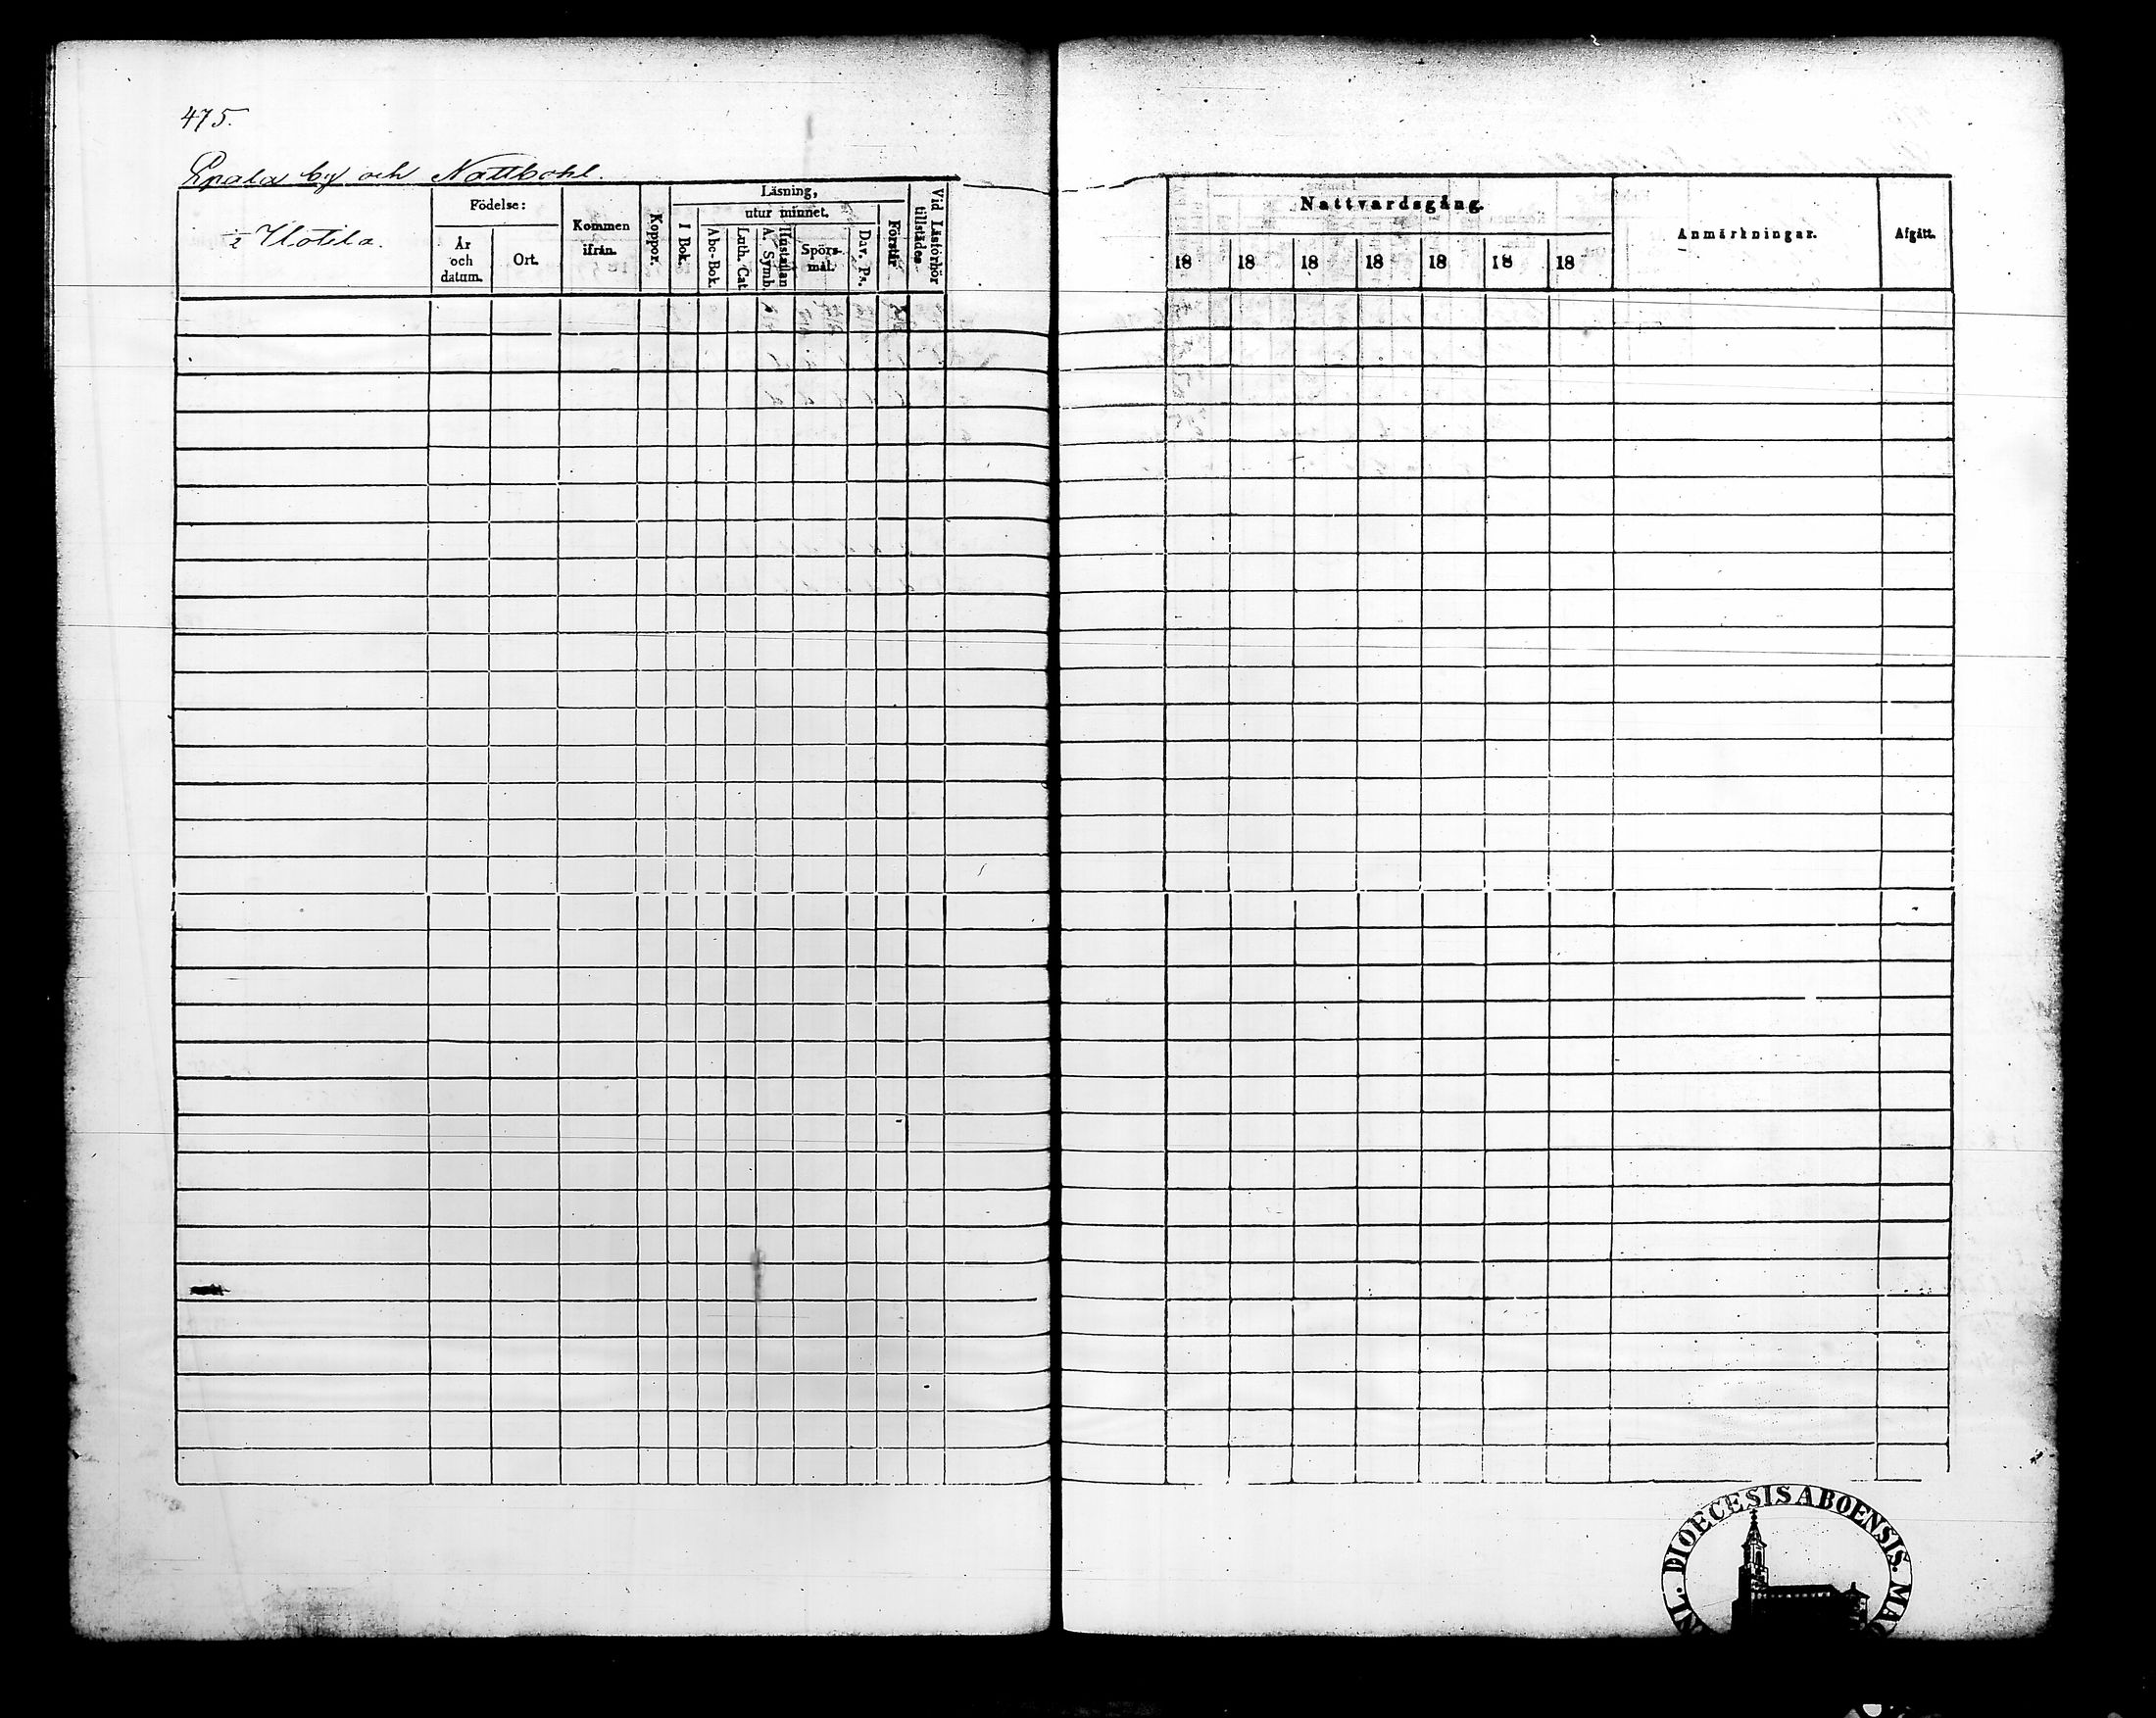 475.
Epala by och Nattbohl.
Födelse:
År
och
datum.
Ort.
Kommen
ifrån.
Koppor.
Läsning,
utur minnet.
I Bok.
Abc-Bok.
Luth. Cat.
A. Symb.
Hustaflan
Spörs-
mål.
Dav. Ps.
Förstår
Vid Läsförhör
tillstädes
Nattvardsgång.
18 18 18 18 18 18 18
Anmärkningar.
Afgått.
DIOECESIS ABOENSIS.